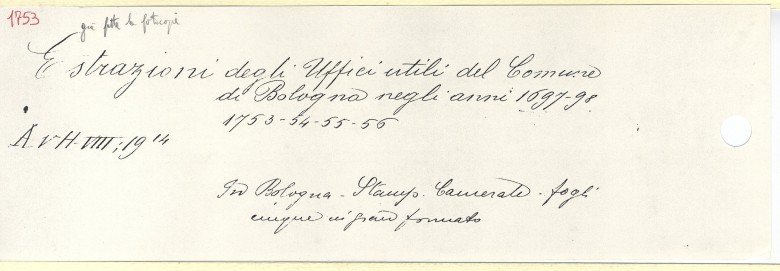 1753
già fatta la fotocopia
Estrazioni degli Uffici utili del Comune
di Bologna negli anni 1697-98
1753-54-55-56
A V H VIIII; 19 14
In Bologna - Stamp. Camerale - fogli
cinque in gran formato